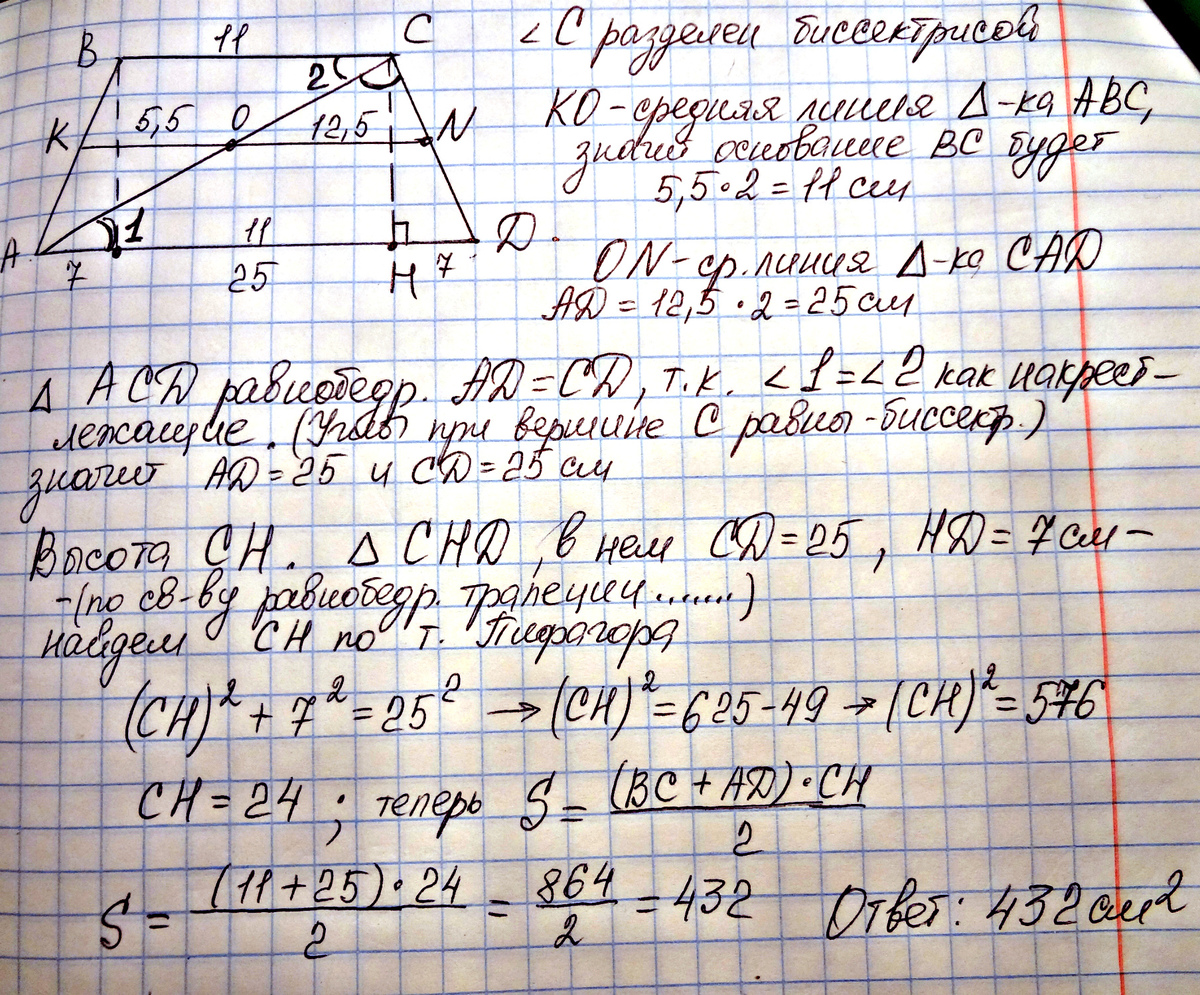 B 11 C
2
K 5,5 O 12,5 N
1
A 7 11 25 H 7 D
< C разделен биссектрисой
KO - средняя линия Δ-ка ABC,
значит основание BC будет
5,5 · 2 = 11 см
ON - ср. линия Δ-ка CAD
AD = 12,5 · 2 = 25 см
Δ ACD равнобедр. AD = CD, т.к. < 1 = < 2 как накрест-
лежащие. (Углы при вершине C равны - биссектр.)
значит AD = 25 и CD = 25 см
Высота CH. Δ CHD, в нем CD = 25, HD = 7 см -
- (по св-ву равнобедр. трапеции .......)
найдем CH по т. Пифагора
(CH)² + 7² = 25² → (CH)² = 625 - 49 → (CH)² = 576
CH = 24 ; теперь S = (BC + AD) · CH / 2
S = (11 + 25) · 24 / 2 = 864 / 2 = 432 Ответ: 432 см²